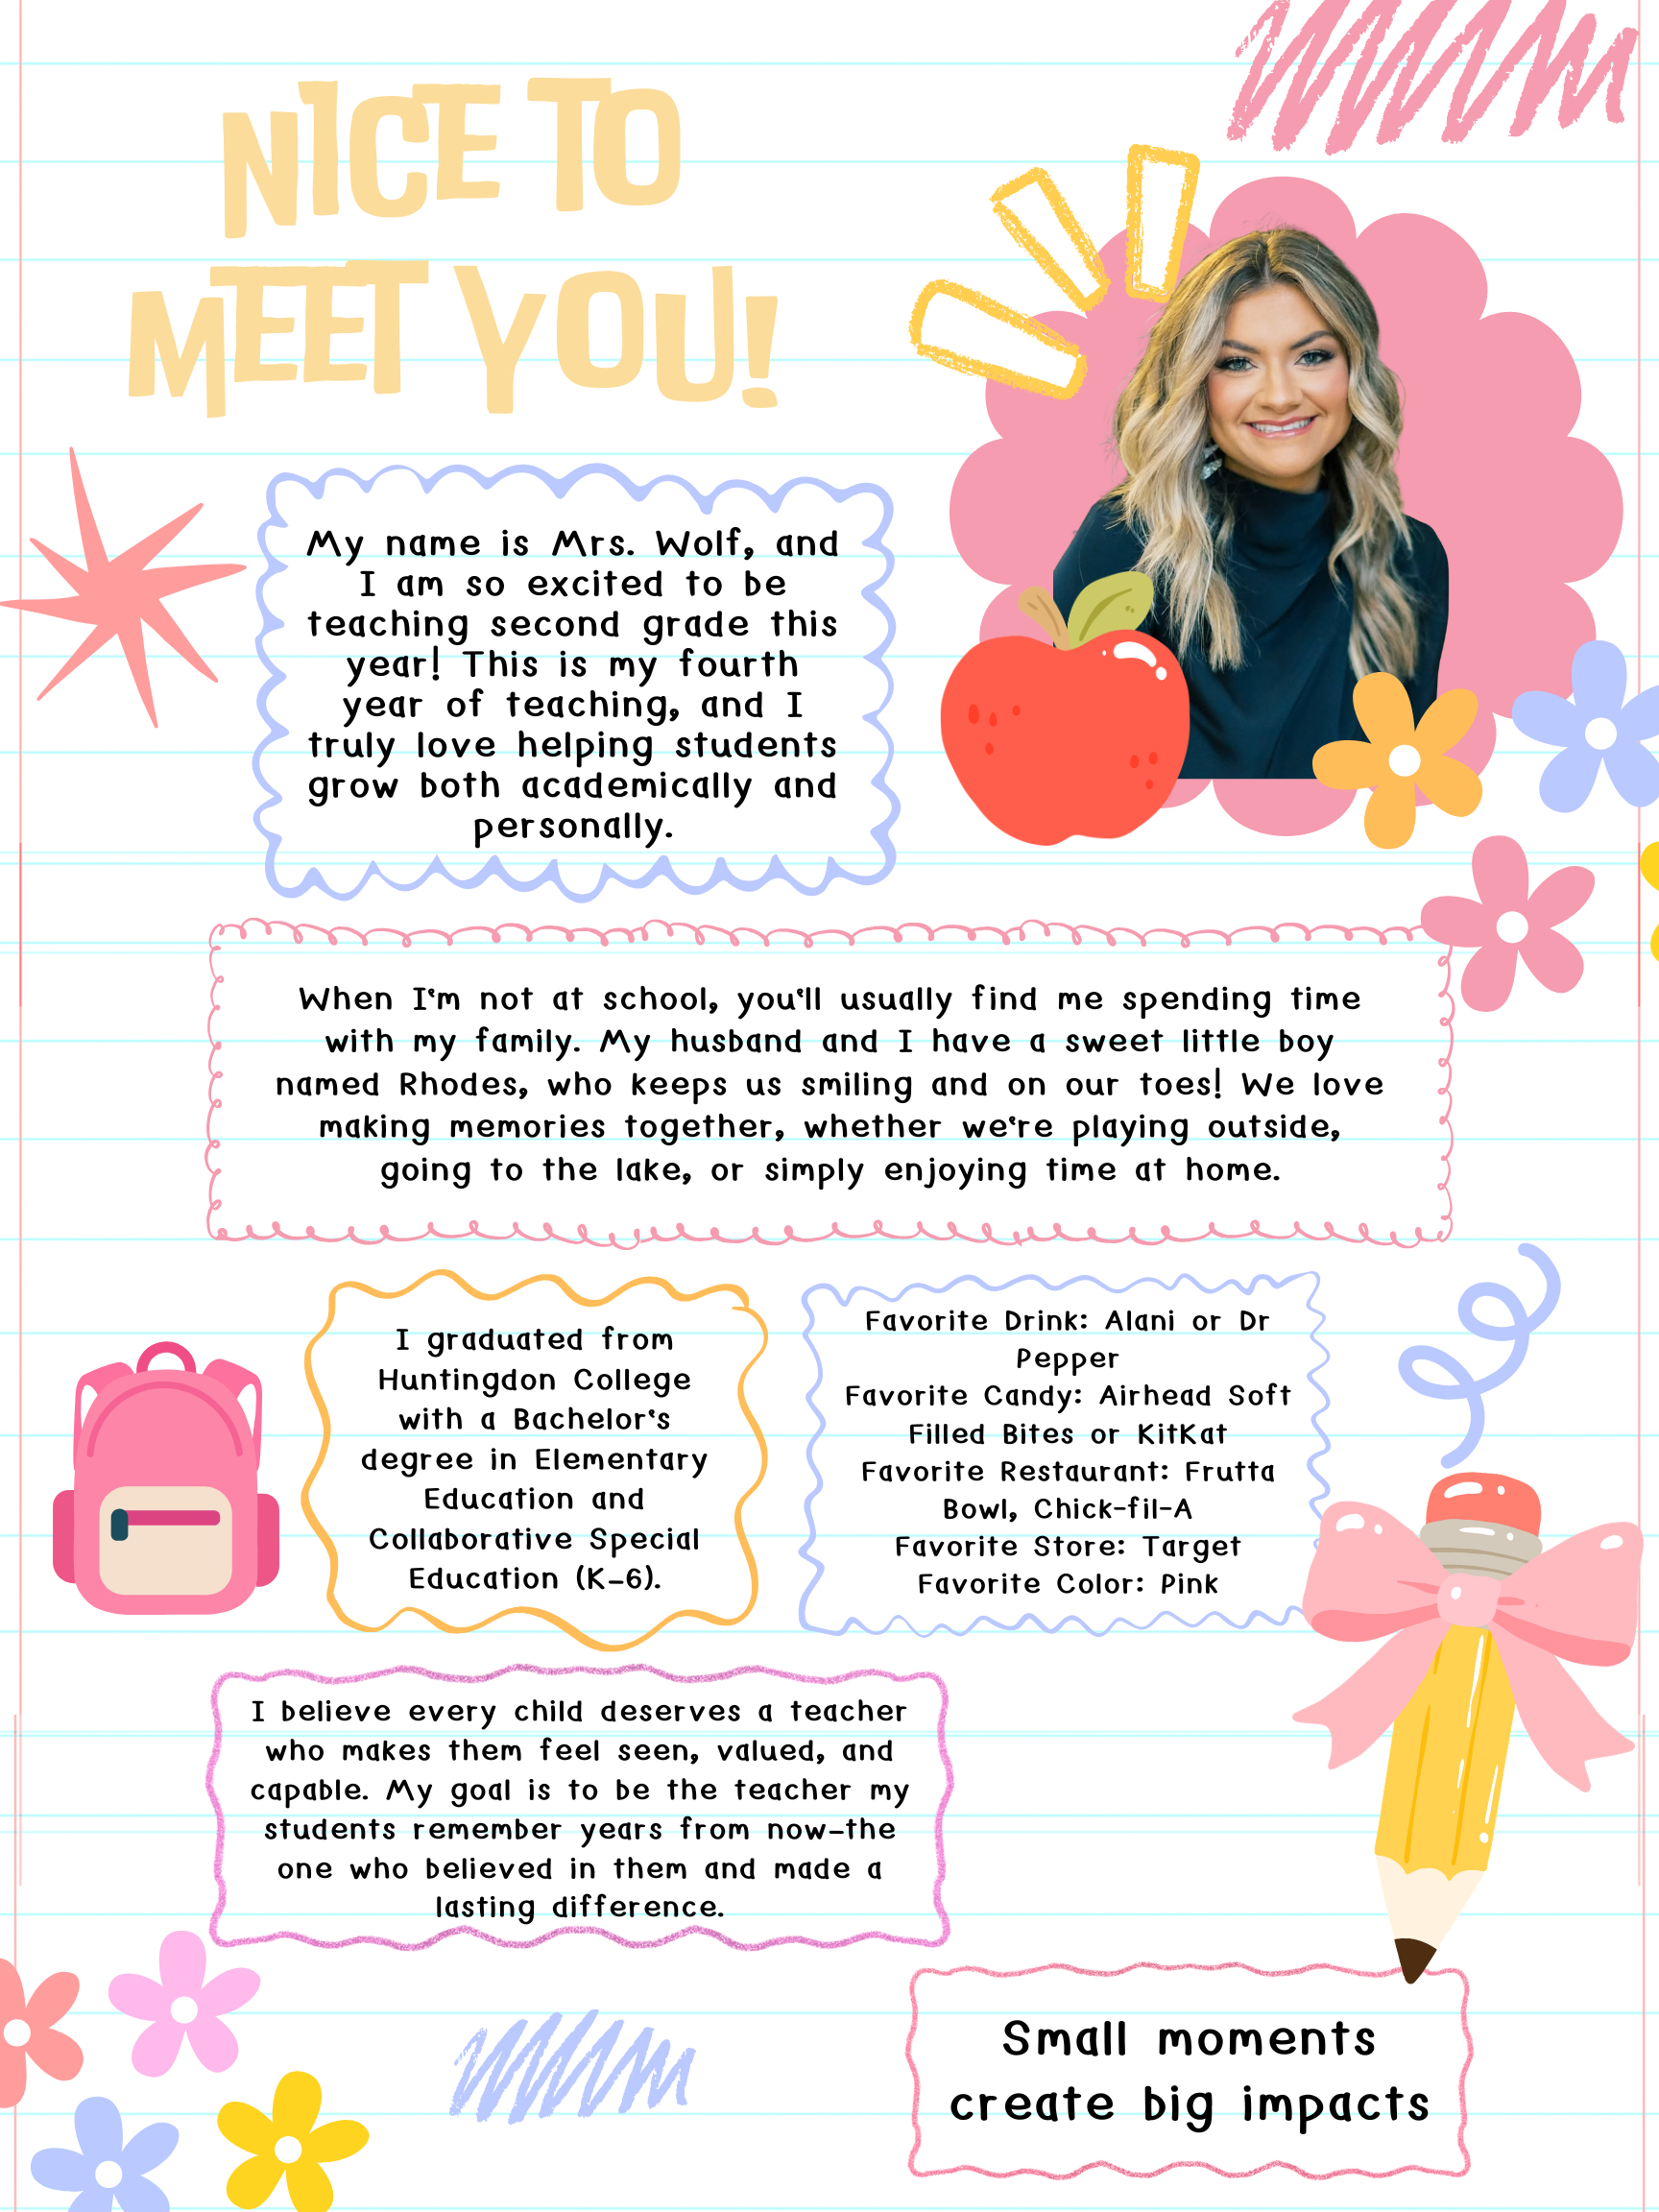 NICE TO
MEET YOU!
My name is Mrs. Wolf, and
I am so excited to be
teaching second grade this
year! This is my fourth
year of teaching, and I
truly love helping students
grow both academically and
personally.
When I'm not at school, you'll usually find me spending time
with my family. My husband and I have a sweet little boy
named Rhodes, who keeps us smiling and on our toes! We love
making memories together, whether we're playing outside,
going to the lake, or simply enjoying time at home.
I graduated from
Huntingdon College
with a Bachelor's
degree in Elementary
Education and
Collaborative Special
Education (K-6).
Favorite Drink: Alani or Dr
Pepper
Favorite Candy: Airhead Soft
Filled Bites or KitKat
Favorite Restaurant: Frutta
Bowl, Chick-fil-A
Favorite Store: Target
Favorite Color: Pink
I believe every child deserves a teacher
who makes them feel seen, valued, and
capable. My goal is to be the teacher my
students remember years from now-the
one who believed in them and made a
lasting difference.
Small moments
create big impacts